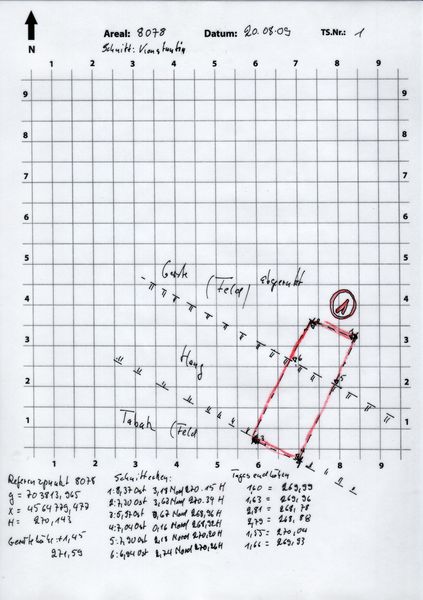 N
Areal: 8078 Datum: 20.08.09 TS.Nr.: 1
Schnitt: Konstantin
1 2 3 4 5 6 7 8 9
9 9
8 8
7 7
6 6
5 5
4 4
3 3
2 2
1 1
Gerste (Feld) abgeerntet
1
Hang
Tabak (Feld
6
5
3
1 2 3 4 5 6 7 8 9
Referenzpunkt 8078
y = 703813,965
X = 4564779,477
H = 270,143
Gerätehöhe: +1,45
271,59
Schnittecken:
1: 8,37 Ost 3,18 Nord 270.15 H
2: 7,30 Ost 3,63 Nord 270.39 H
3: 5,97 Ost 0,67 Nord 268,96 H
4: 7,04 Ost 0,16 Nord 268,92 H
5: 7,90 Ost 2,18 Nord 270,20 H
6: 6,94 Ost 2,74 Nord 270,26 H
Tagesendhöhen
1,60 = 269,99
1,63 = 269,96
2,81 = 268,78
2,79 = 268,88
1,55 = 270,04
1,66 = 269,93